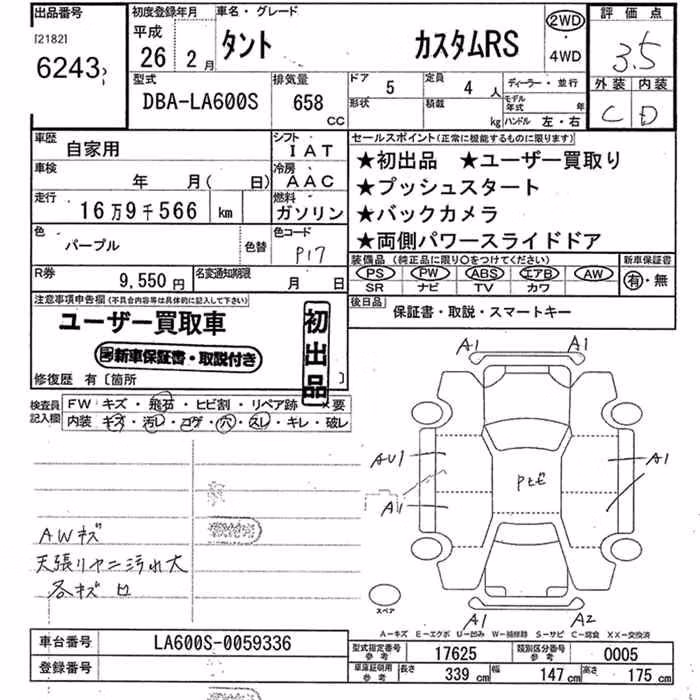 出品番号
[2182]
6243
初度登録年月
平成
26年 2月
車名・グレード
タント カスタムRS
2WD
・
4WD
評価点
3.5
外装 内装
C D
型式
DBA-LA600S
排気量
658 CC
ドア 5
形状
定員 4人
積載 kg
ディーラー・並行
モデル年式 年
ハンドル 左・右
車歴
自家用
シフト
IAT
車検
年 月( 日)
冷房
AAC
走行
16万9千566 km
燃料
ガソリン
色
パープル
色替
色コード
P17
R券
9,550円
名変通知期限
月 日
セールスポイント(正常に機能するものに限ります)
★初出品 ★ユーザー買取り
★プッシュスタート
★バックカメラ
★両側パワースライドドア
装備品 (純正品に限り○をつけてください)
PS PW ABS エアB AW
SR ナビ TV カワ
新車保証書
有・無
後日品
保証書・取説・スマートキー
注意事項申告欄(不具合内容等は具体的に記入して下さい)
ユーザー買取車
新車保証書・取説付き
初出品
修復歴 有〔箇所 〕
検査員記入欄
FW キズ・飛石・ヒビ割・リペア跡 ×要
内装 キズ・汚レ・コゲ・穴・スレ・キレ・破レ
AWキズ
天張リヤニ汚れ大
各キズ
A1 A1
AU1 A1
PtE
A1
スペア
A1 A2
A-キズ E-エクボ U-凹み W-補修跡 S-サビ C-腐食 XX-交換済
車台番号 LA600S-0059336
登録番号
型式指定番号 参考 17625
類別区分番号 参考 0005
車庫証明用 参考 長さ 339 cm 幅 147 cm 高さ 175 cm